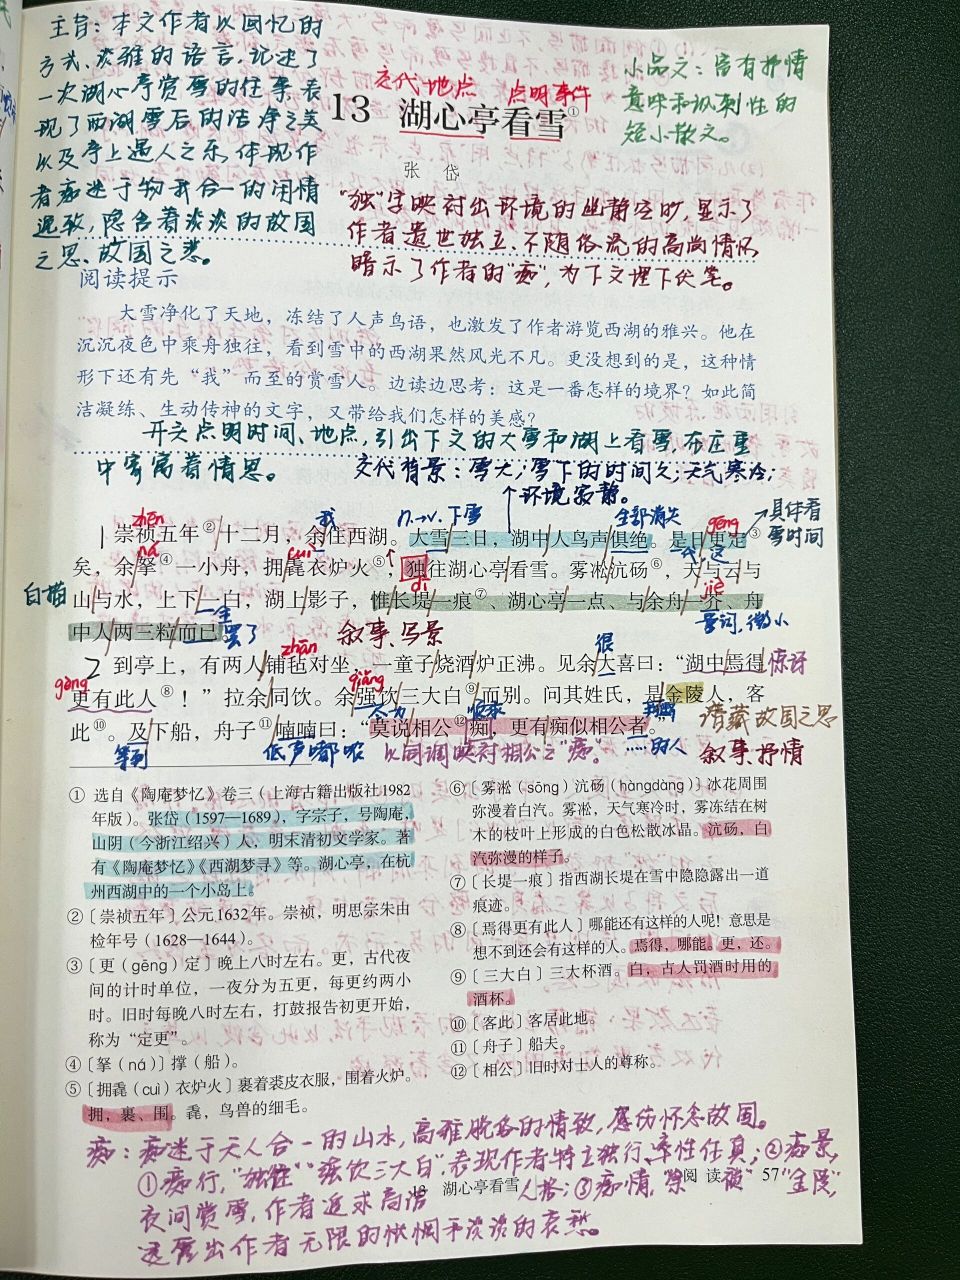 主旨：本文作者以回忆的
方式、淡雅的语言，记述了
一次湖心亭赏雪的往事，表
现了西湖雪后的洁净之美
以及亭上遇人之乐，体现作
者痴迷于物我合一的闲情
逸致，隐含着淡淡的故国
之思、故国之悲。
交代地点 点明事件
13 湖心亭看雪①
张 岱
小品文：富有抒情
意味和讽刺性的
短小散文。
"独"字映衬出环境的幽静空妙，显示了
作者遗世独立、不随俗流的高尚情怀
暗示了作者的"痴"，为下文埋下伏笔。
阅读提示
大雪净化了天地，冻结了人声鸟语，也激发了作者游览西湖的雅兴。他在
沉沉夜色中乘舟独往，看到雪中的西湖果然风光不凡。更没想到的是，这种情
形下还有先“我”而至的赏雪人。边读边思考：这是一番怎样的境界？如此简
洁凝练、生动传神的文字，又带给我们怎样的美感？
开头点明时间、地点，引出下文的大雪和湖上看雪，在庄重
中寄寓着情思。
交代背景：雪大；雪下的时间久；天气寒冷；
环境寂静。
zhēn 我 n.→v. 下雪 全部消失 gēng 具体看
雪时间
1 崇祯五年②十二月，余住西湖。大雪三日，湖中人鸟声俱绝。是日更定③
ná cuì
矣，余拏④一小舟，拥毳衣炉火⑤，独往湖心亭看雪。雾凇沆砀⑥，天与云与
白描 jiè
山与水，上下一白，湖上影子，惟长堤一痕⑦、湖心亭一点、与余舟一芥、舟
一全 量词，微小
中人两三粒而已。
罢了 叙事、写景
zhān 很
2 到亭上，有两人铺毡对坐，一童子烧酒炉正沸。见余大喜曰：“湖中焉得
惊讶
gèng qiǎng
更有此人⑧！”拉余同饮。余强饮三大白⑨而别。问其姓氏，是金陵人，客
潜藏故国之思
此⑩。及下船，舟子⑪喃喃曰：“莫说相公⑫痴，更有痴似相公者。”
等到 低声嘟哝 以同调映衬相公之"痴"。 ……的人 叙事、抒情
① 选自《陶庵梦忆》卷三（上海古籍出版社1982
年版）。张岱（1597—1689），字宗子，号陶庵，
山阴（今浙江绍兴）人，明末清初文学家。著
有《陶庵梦忆》《西湖梦寻》等。湖心亭，在杭
州西湖中的一个小岛上。
② 〔崇祯五年〕公元1632年。崇祯，明思宗朱由
检年号（1628—1644）。
③ 〔更（gēng）定〕晚上八时左右。更，古代夜
间的计时单位，一夜分为五更，每更约两小
时。旧时每晚八时左右，打鼓报告初更开始，
称为“定更”。
④ 〔拏（ná）〕撑（船）。
⑤ 〔拥毳（cuì）衣炉火〕裹着裘皮衣服，围着火炉。
拥，裹、围。毳，鸟兽的细毛。
⑥ 〔雾凇（sōng）沆砀（hàngdàng）〕冰花周围
弥漫着白汽。雾凇，天气寒冷时，雾冻结在树
木的枝叶上形成的白色松散冰晶。沆砀，白
汽弥漫的样子。
⑦ 〔长堤一痕〕指西湖长堤在雪中隐隐露出一道
痕迹。
⑧ 〔焉得更有此人〕哪能还有这样的人呢！意思是
想不到还会有这样的人。焉得，哪能。更，还。
⑨ 〔三大白〕三大杯酒。白，古人罚酒时用的
酒杯。
⑩ 〔客此〕客居此地。
⑪ 〔舟子〕船夫。
⑫ 〔相公〕旧时对士人的尊称。
痴：痴迷于天人合一的山水，高雅脱俗的情致，感伤怀念故国。
①痴行，"独往""强饮三大白"，表现作者特立独行、率性任真；②痴景，
夜间赏雪，作者追求高洁 人格；③痴情，"崇祯""金陵"，
透露出作者无限的怅惘和淡淡的哀愁。
13 湖心亭看雪 阅 读 57